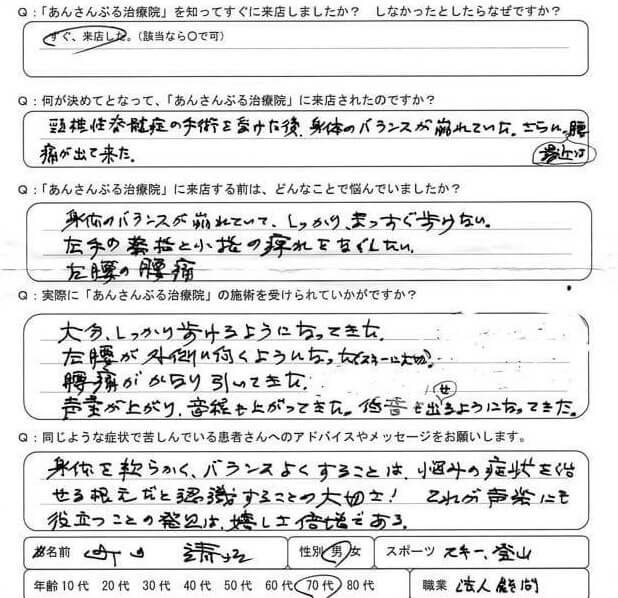 Q：「あんさんぶる治療院」を知ってすぐに来店しましたか？　しなかったとしたらなぜですか？
すぐ、来店した。（該当なら○で可）
Q：何が決めてとなって、「あんさんぶる治療院」に来店されたのですか？
頸椎性脊髄症の手術を受けた後、身体のバランスが崩れていた。さらに、最近は腰
痛が出て来た。
Q：「あんさんぶる治療院」に来店する前は、どんなことで悩んでいましたか？
身体のバランスが崩れていて、しっかり、まっすぐ歩けない。
左手の薬指と小指の痺れをなくしたい。
左腰の腰痛
Q：実際に「あんさんぶる治療院」の施術を受けられていかがですか？
大分、しっかり歩けるようになってきた。
左腰が外側に向くようになった（スキーに大切）。
腰痛がかなり引いてきた。
声量が上がり、音程も上がってきた。低音も出せるようになってきた。
Q：同じような症状で苦しんでいる患者さんへのアドバイスやメッセージをお願いします。
身体を軟らかく、バランスよくすることは、悩みの症状を治
せる根元だと認識することの大切さ！　これが声楽にも
役立つことの発見は、嬉しさ倍増である。
お名前　町田　性別 男 女　スポーツ　スキー、登山
年齢 10代　20代　30代　40代　50代　60代　70代　80代　職業　法人顧問